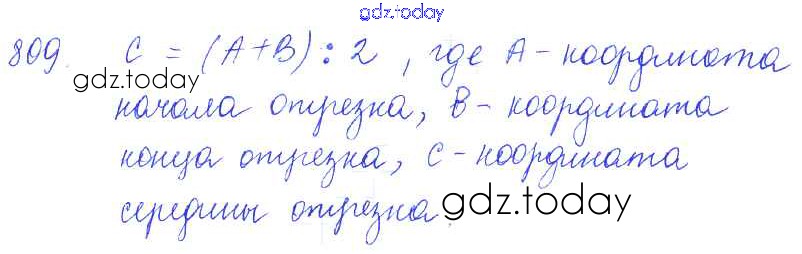 gdz.today
809. C = (A+B) : 2 , где A - координата
gdz.today
начала отрезка, B - координата
конца отрезка, C - координата
середины отрезка.
gdz.today